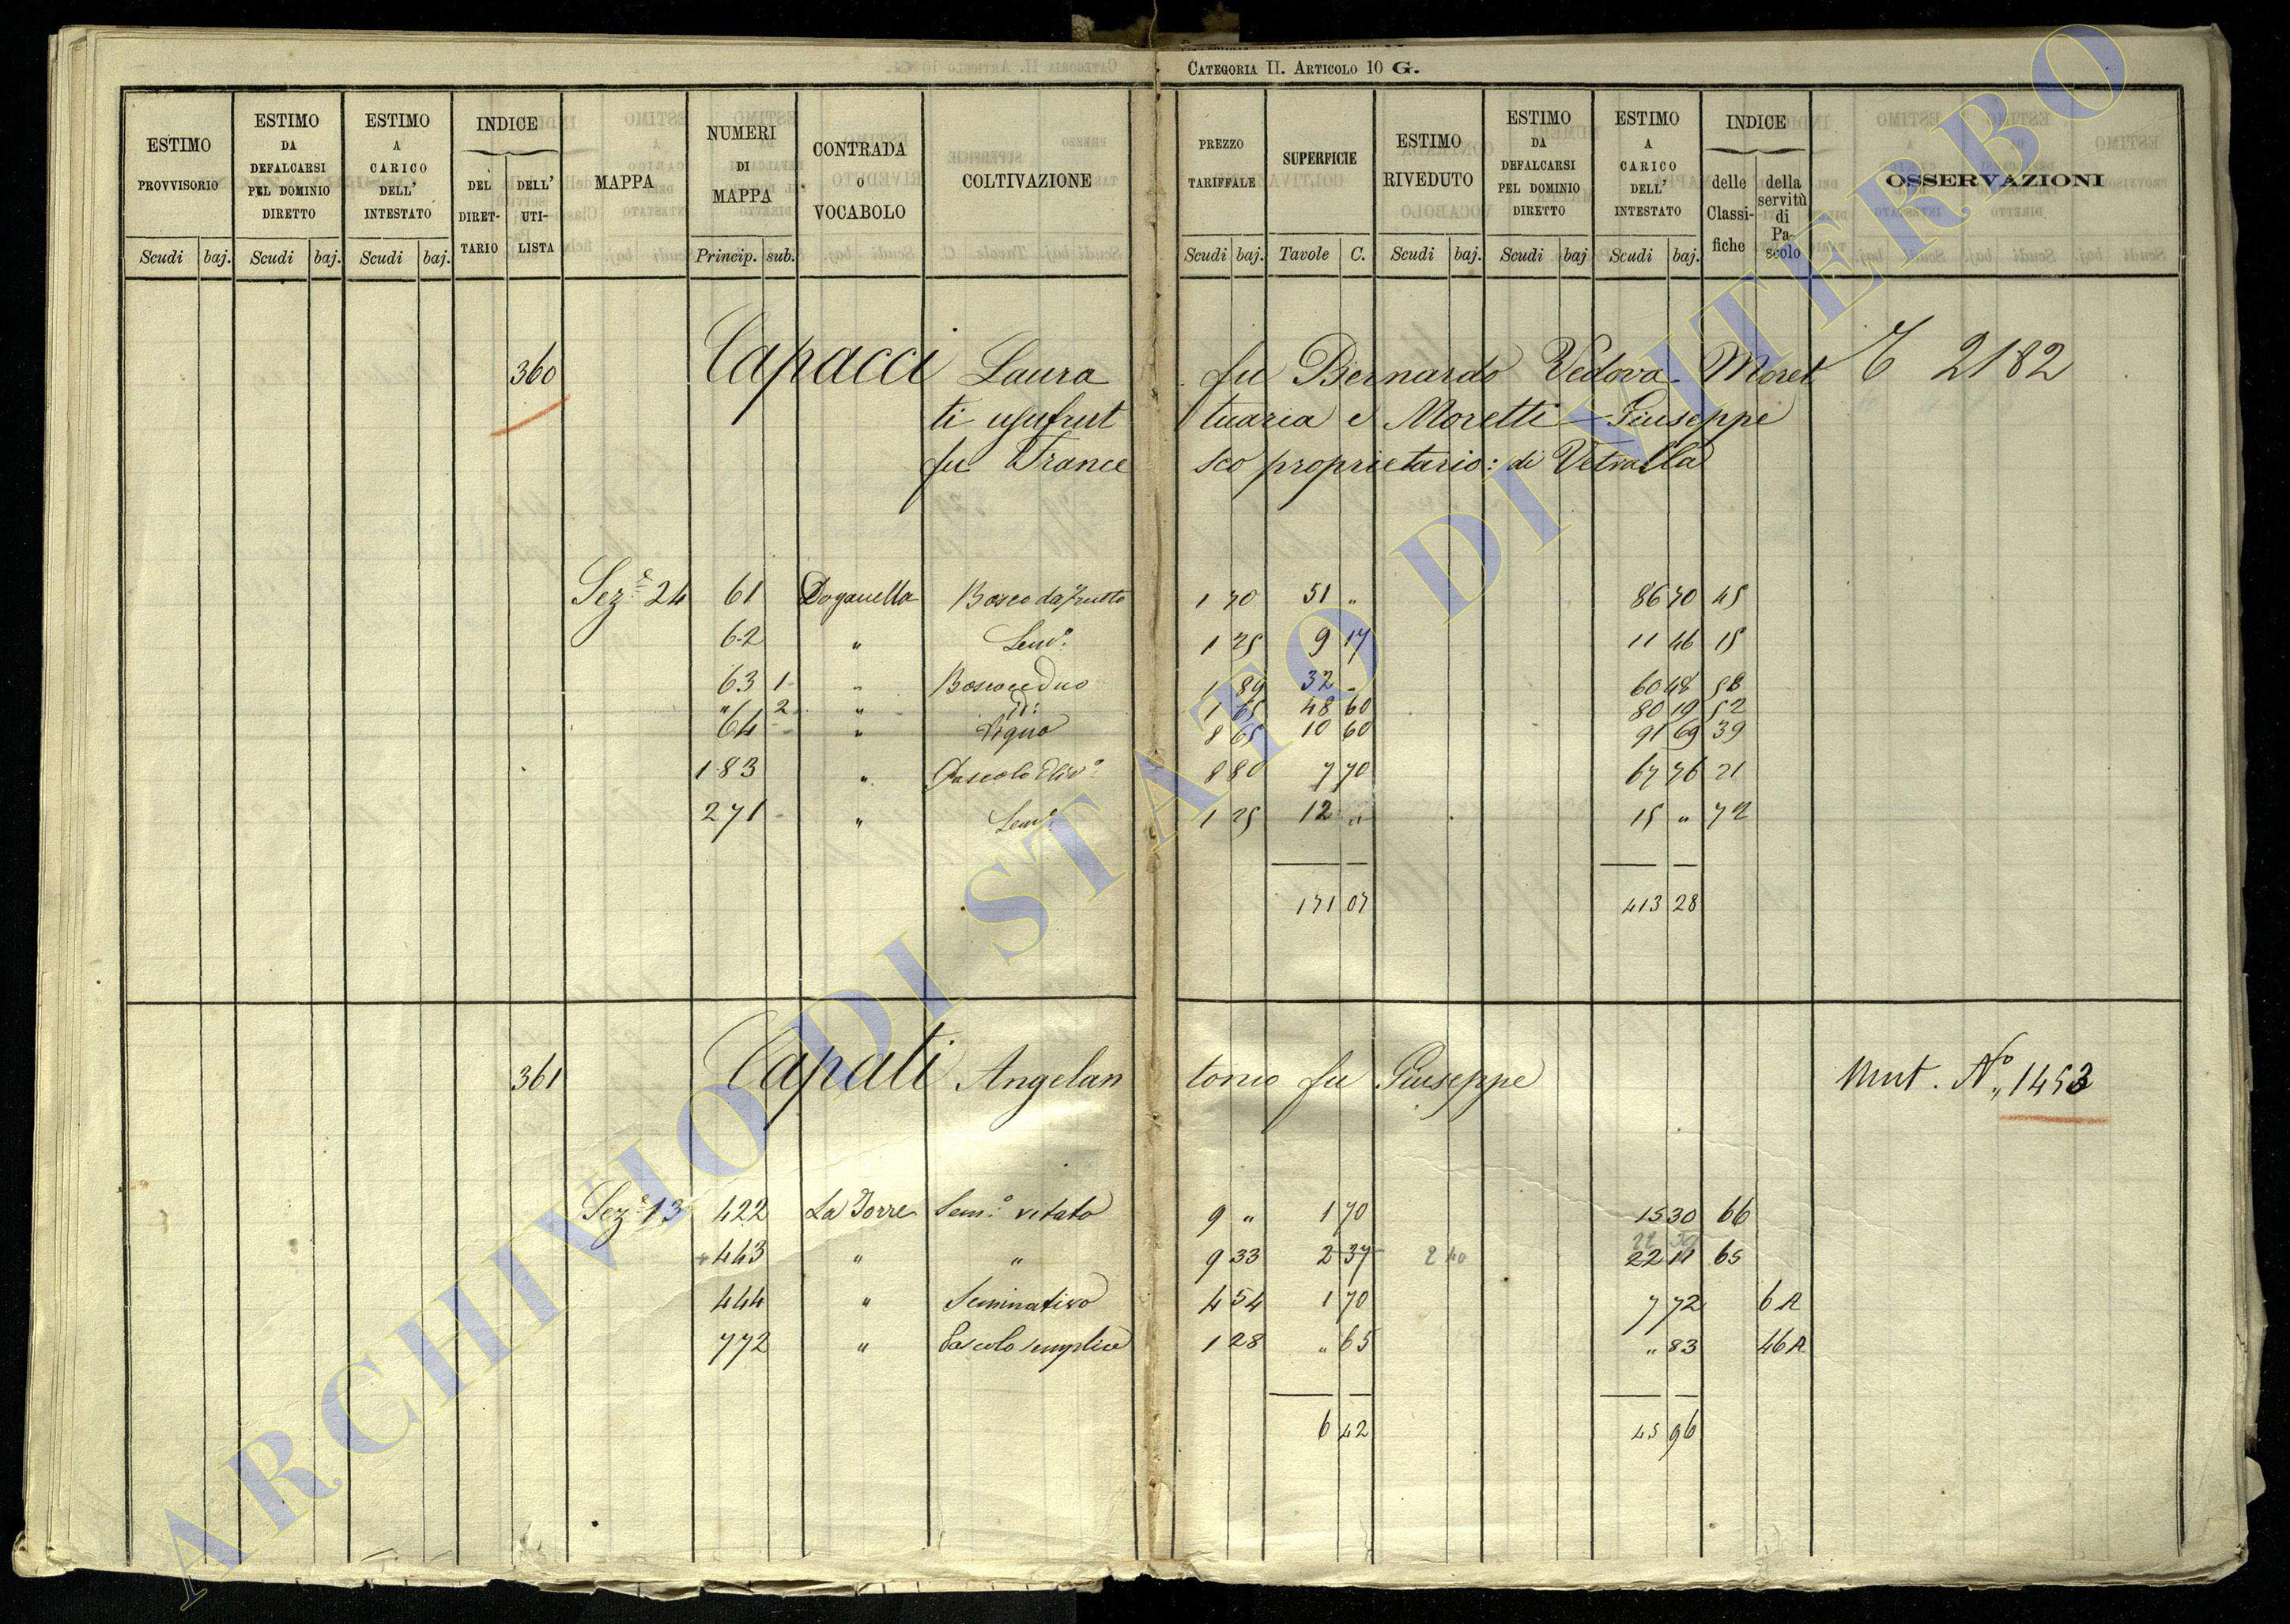 CATEGORIA II. ARTICOLO 10 G.
ESTIMO PROVVISORIO
ESTIMO DA DEFALCARSI PEL DOMINIO DIRETTO
ESTIMO A CARICO DELL' INTESTATO
INDICE
DEL DIRETTARIO
DELL' UTILISTA
MAPPA
NUMERI DI MAPPA
CONTRADA O VOCABOLO
COLTIVAZIONE
PREZZO TARIFFALE
SUPERFICIE
ESTIMO RIVEDUTO
ESTIMO DA DEFALCARSI PEL DOMINIO DIRETTO
ESTIMO A CARICO DELL' INTESTATO
INDICE
delle Classifiche
della servitù di Pascolo
OSSERVAZIONI
Scudi baj. Scudi baj. Scudi baj. Princip. sub. Scudi baj. Tavole C. Scudi baj. Scudi baj Scudi baj.
360 Capacci Laura fu Bernardo Vedova Moret 2182
ti usufrut tuaria e Moretti Giuseppe
fu France sco proprietario: di Vetralla
Sez.e 24 61 Doganella Bosco da frutto 1 70 51 „ 86 70 45
62 „ Sem.o 1 25 9 17 11 46 15
63 1 „ Bosco ceduo 1 89 32 „ 60 48 58
„ 2 „ id: 1 65 48 60 80 19 52
64 „ Vigna 8 65 10 60 91 69 39
183 „ Pascolo Oliv.o 8 80 7 70 67 76 21
271 „ Sem.o 1 25 12 „ 15 „ 72
171 07 413 28
361 Capati Angelan tonio fu Giuseppe Mut. No „ 1453
Sez.e 13 422 La Torre Sem.o vitato 9 „ 1 70 15 30 66
22 39
+ 463 „ „ 9 33 2 37 2 40 22 11 65
444 „ Seminativo 4 54 1 70 7 72 6 A
772 „ Pascolo semplice 1 28 „ 65 „ 83 46 A
6 42 45 96
ARCHIVIO DI STATO DI VITERBO